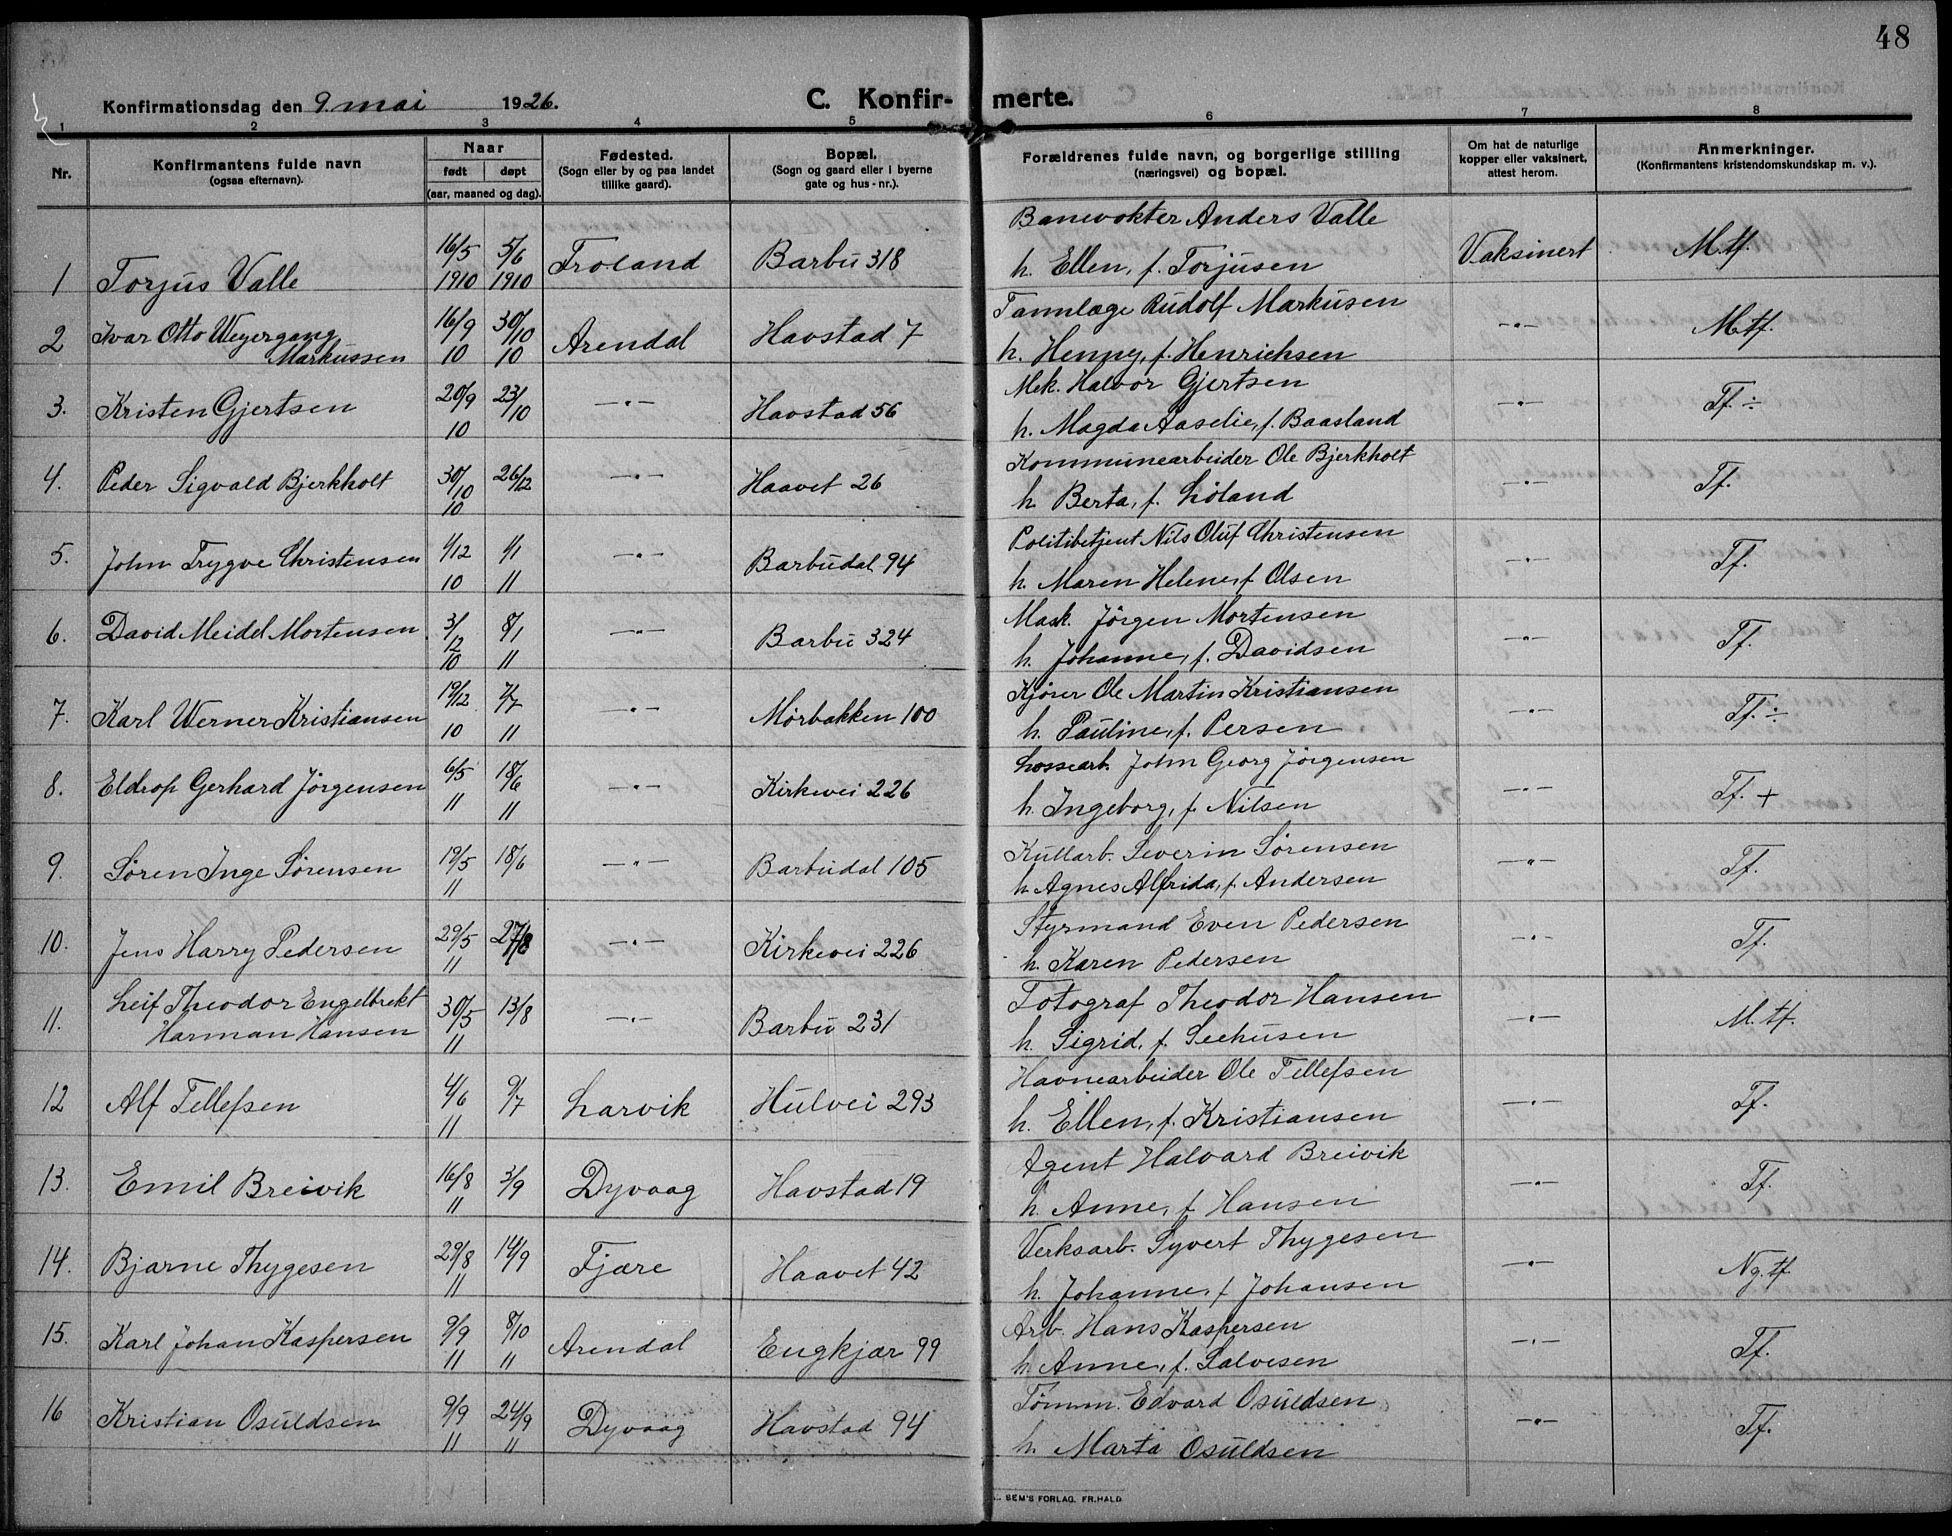 48
Konfirmationsdag den 9. mai 1926.
C. Konfir- merte.
1 2 3 4 5 6 7 8
Nr.
Konfirmantens fulde navn
(ogsaa efternavn).
Naar
født døpt
(aar, maaned og dag).
Fødested.
(Sogn eller by og paa landet
tillike gaard).
Bopæl.
(Sogn og gaard eller i byerne
gate og hus-nr.).
Forældrenes fulde navn, og borgerlige stilling
(næringsvei) og bopæl.
Om hat de naturlige
kopper eller vaksinert,
attest herom.
Anmerkninger.
(Konfirmantens kristendomskundskap m. v.).
Banevokter Anders Valle
1 Torjus Valle 16/5 1910 5/6 1910 Froland Barbu 318 h. Ellen, f. Torjusen Vaksinert M.tf.
Tannlæge Rudolf Markusen
2 Ivar Otto Weyergang 16/9 30/10 Arendal Havstad 7 —"— M.tf.
Markussen 10 10 h. Henny, f. Henrichsen
Mek. Halvor Gjertsen
3. Kristen Gjertsen 20/9 23/10 —"— Havstad 56 —"— Tf. ÷
10 h. Magda Aaselie, f. Baasland
Kommunearbeider Ole Bjerkholt
4. Peder Sigvald Bjerkholt 30/10 26/12 —"— Haavet 26 —"— Tf.
10 h. Berta, f. Løland
Politibetjent Nils Oluf Christensen
5. John Trygve Christensen 4/12 1/1 —"— Barbudal 94 —"— Tf.
10 11 h. Maren Helene, f. Olsen
Mask. Jörgen Mortensen
6. David Meidel Mortensen 3/12 8/1 —"— Barbu 324 —"— Tf.
10 11 h. Johanne, f. Davidsen
Kjører Ole Martin Kristiansen
7. Karl Werner Kristiansen 19/12 7/7 —"— Mørbakken 100 —"— Tf. ÷
10 11 h. Pauline, f. Persen
Lossearb. John Georg Jörgensen
8. Eldrop Gerhard Jörgensen 6/5 18/6 —"— Kirkevei 226 —"— Tf. +
11 11 h. Ingeborg, f. Nilsen
Kullarb. Severin Sørensen
9. Søren Inge Sørensen 19/5 18/6 —"— Barbudal 105 —"— Tf.
11 h. Agnes Alfrida, f. Andersen
Styrmand Even Pedersen
10. Jens Harry Pedersen 29/5 27/8 —"— Kirkevei 226 —"— Tf.
11 h. Karen Pedersen
Leif Theodor Engelbrekt Fotograf Theodor Hansen
11. Harman Hansen 30/5 13/8 —"— Barbu 231 —"— M.tf.
11 h. Sigrid, f. Seehusen
Havnearbeider Ole Tellefsen
12 Alf Tellefsen 4/6 9/7 Larvik Hulvei 293 —"— Tf.
11 h. Ellen, f. Kristiansen
Agent Halvard Breivik
13. Emil Breivik 16/8 3/9 Dyvaag Havstad 19 —"— Tf.
11 h. Anne, f. Hansen
Verksarb. Syvert Thygesen
14. Bjarne Thygesen 29/8 14/9 Fjære Haavet 42 —"— Ng.tf.
11 h. Johanne, f. Johansen
Arb. Hans Kaspersen
15. Karl Johan Kaspersen 9/9 8/10 Arendal Engkjær 99 —"— Tf.
11 11 h. Anne, f. Salvesen
Tømm. Edvard Osuldsen
16 Kristian Osuldsen 9/9 24/9 Dyvaag Havstad 94 —"— Tf.
11 11 h. Marta Osuldsen
SEM'S FORLAG. FR.HALD